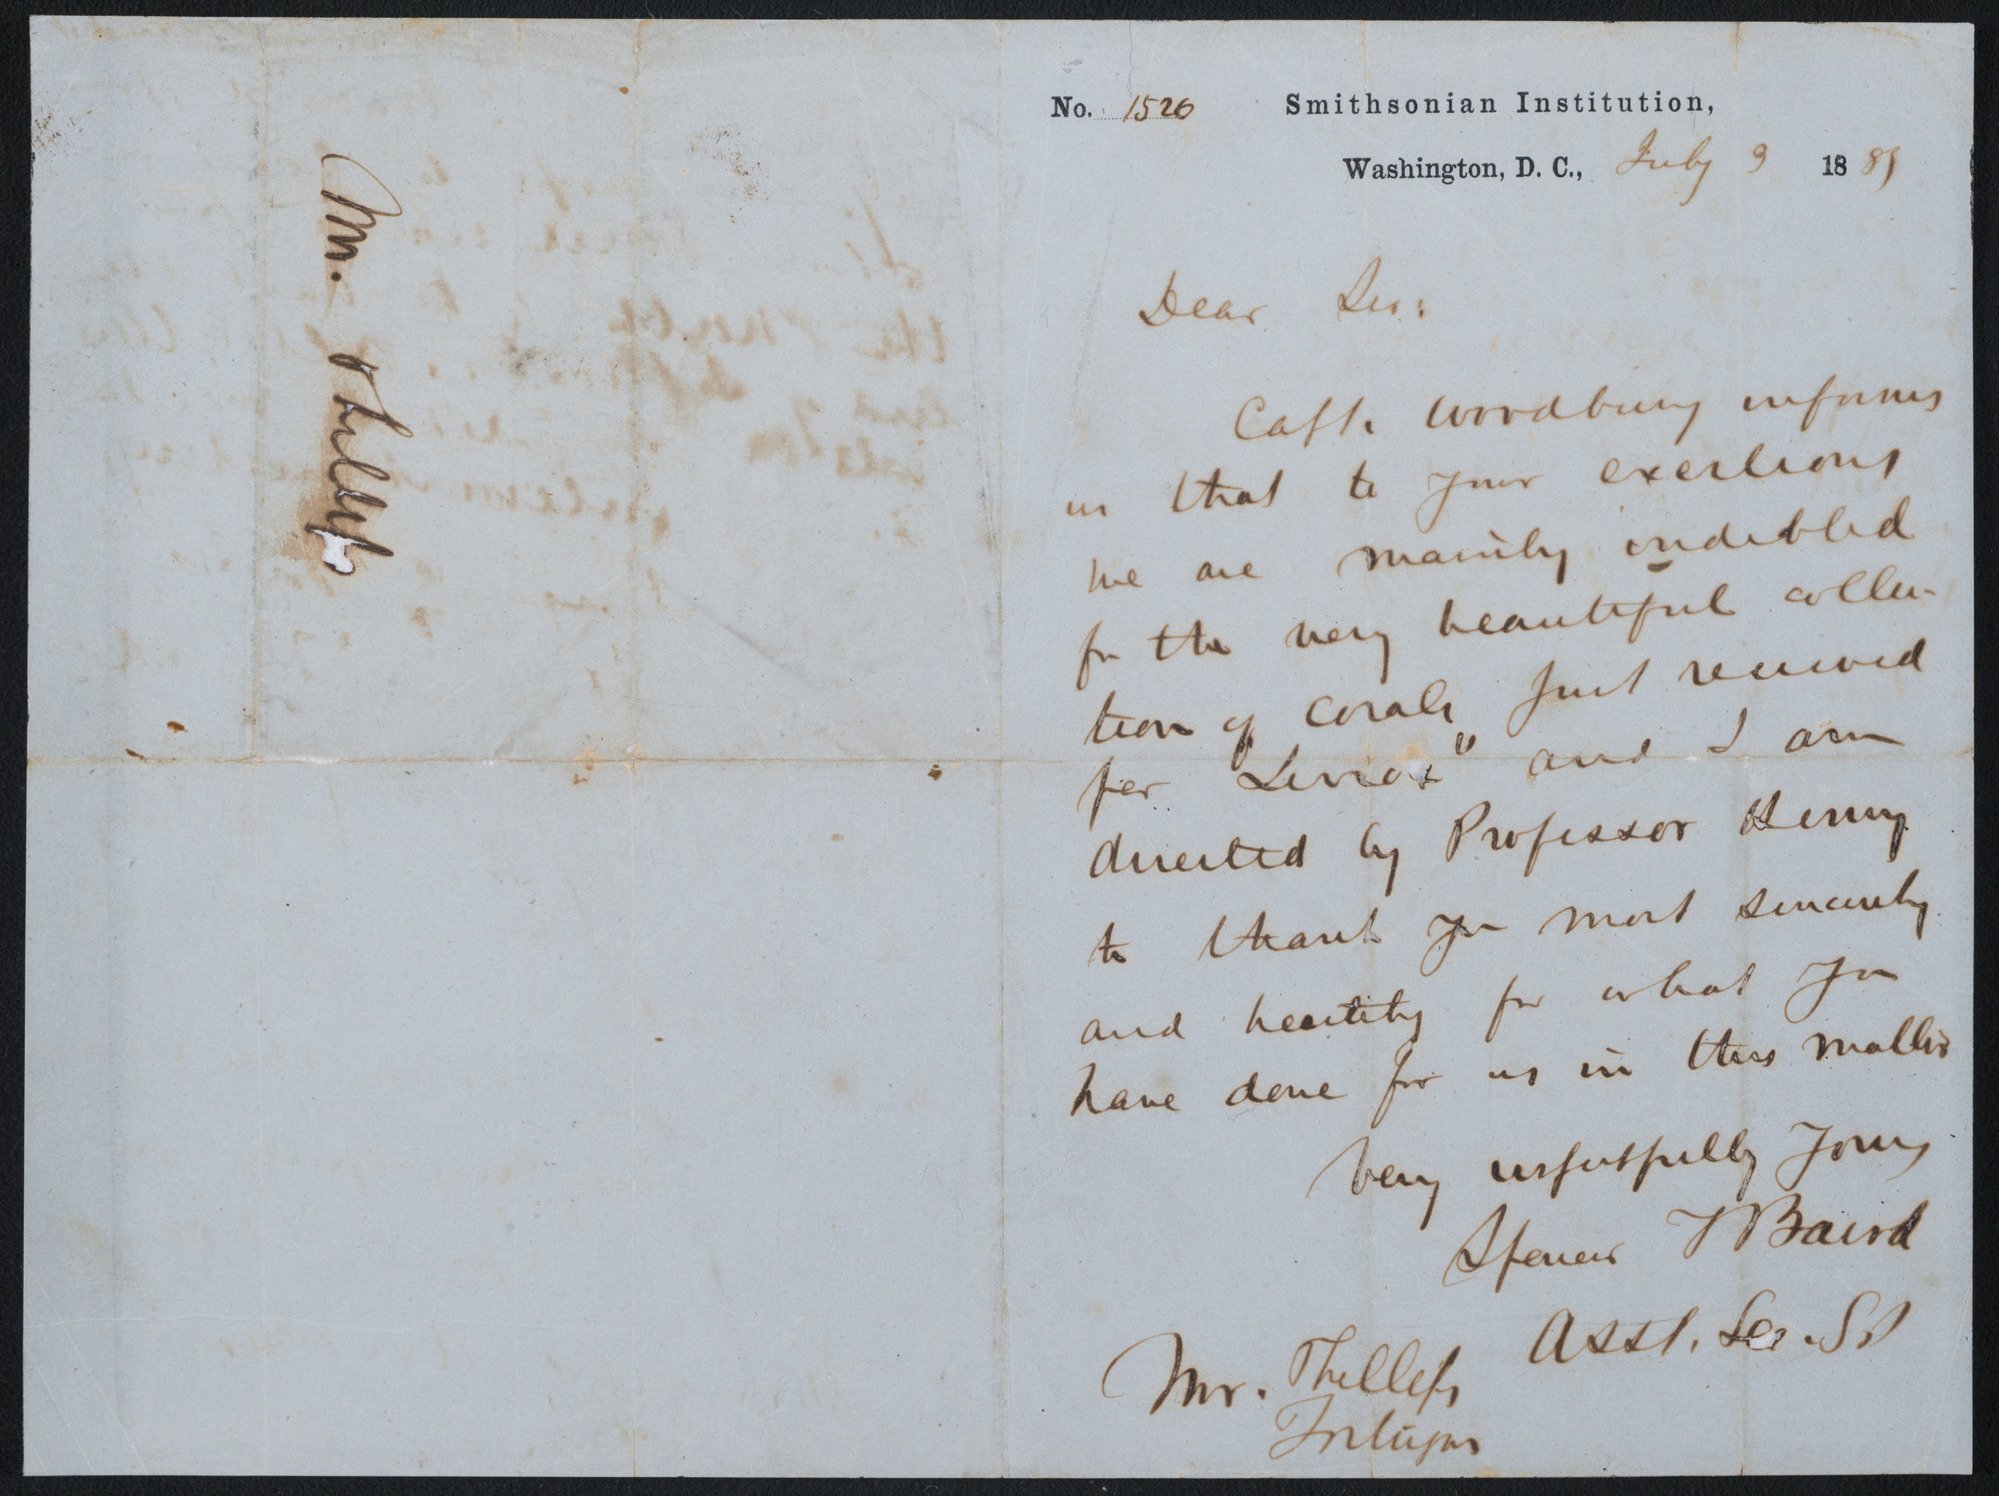 Mr. Phillips
No. 1526 Smithsonian Institution,
Washington, D. C., July 9 18
Dear Sir:
Capt. Woodbury informs
us that to your exertions
we are mainly indebted
for the very beautiful collec-
tion of corals just received
per "Lenox" and I am
directed by Professor Henry
to thank you most sincerely
and heartily for what you
have done for us in this matter
Very respectfully yours
Spencer F Baird
Asst. Sec. SI
Mr. Phillips
Tortugas